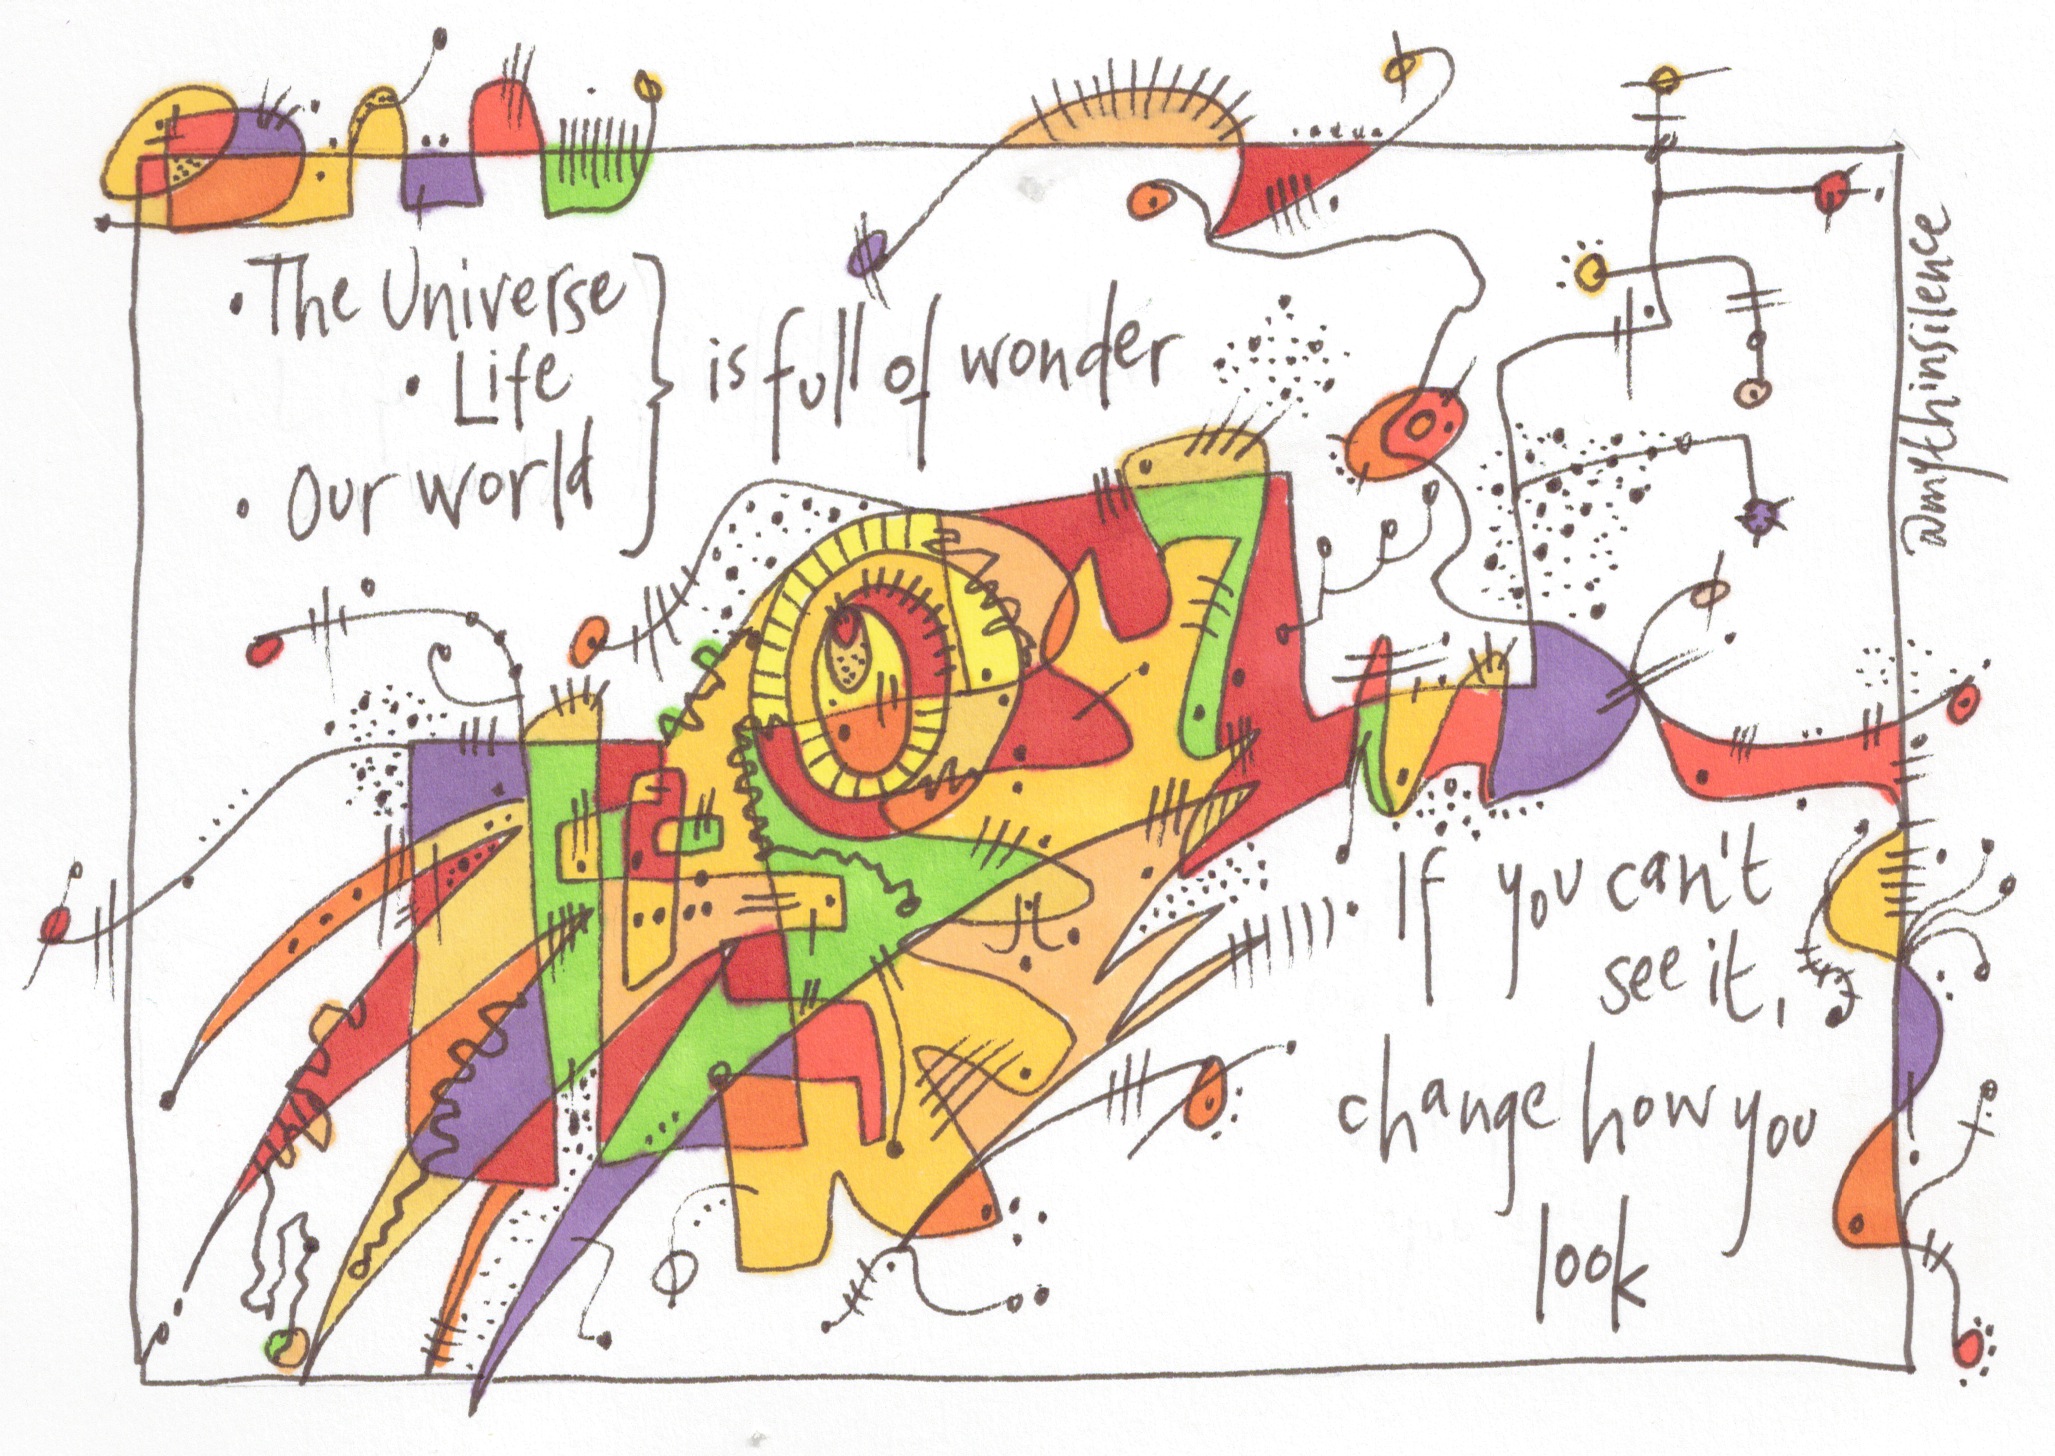 • The Universe
• Life
• Our world
is full of wonder
@mythinsilence
• If you can't
see it,
change how you
look